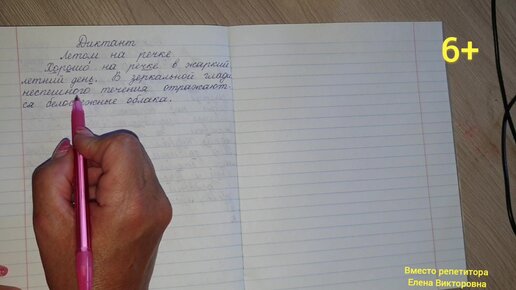 Диктант
Летом на речке
Хорошо на речке в жаркий
летний день. В зеркальной глади
неспешного течения отражают-
ся белоснежные облака.
6+
Вместо репетитора
Елена Викторовна